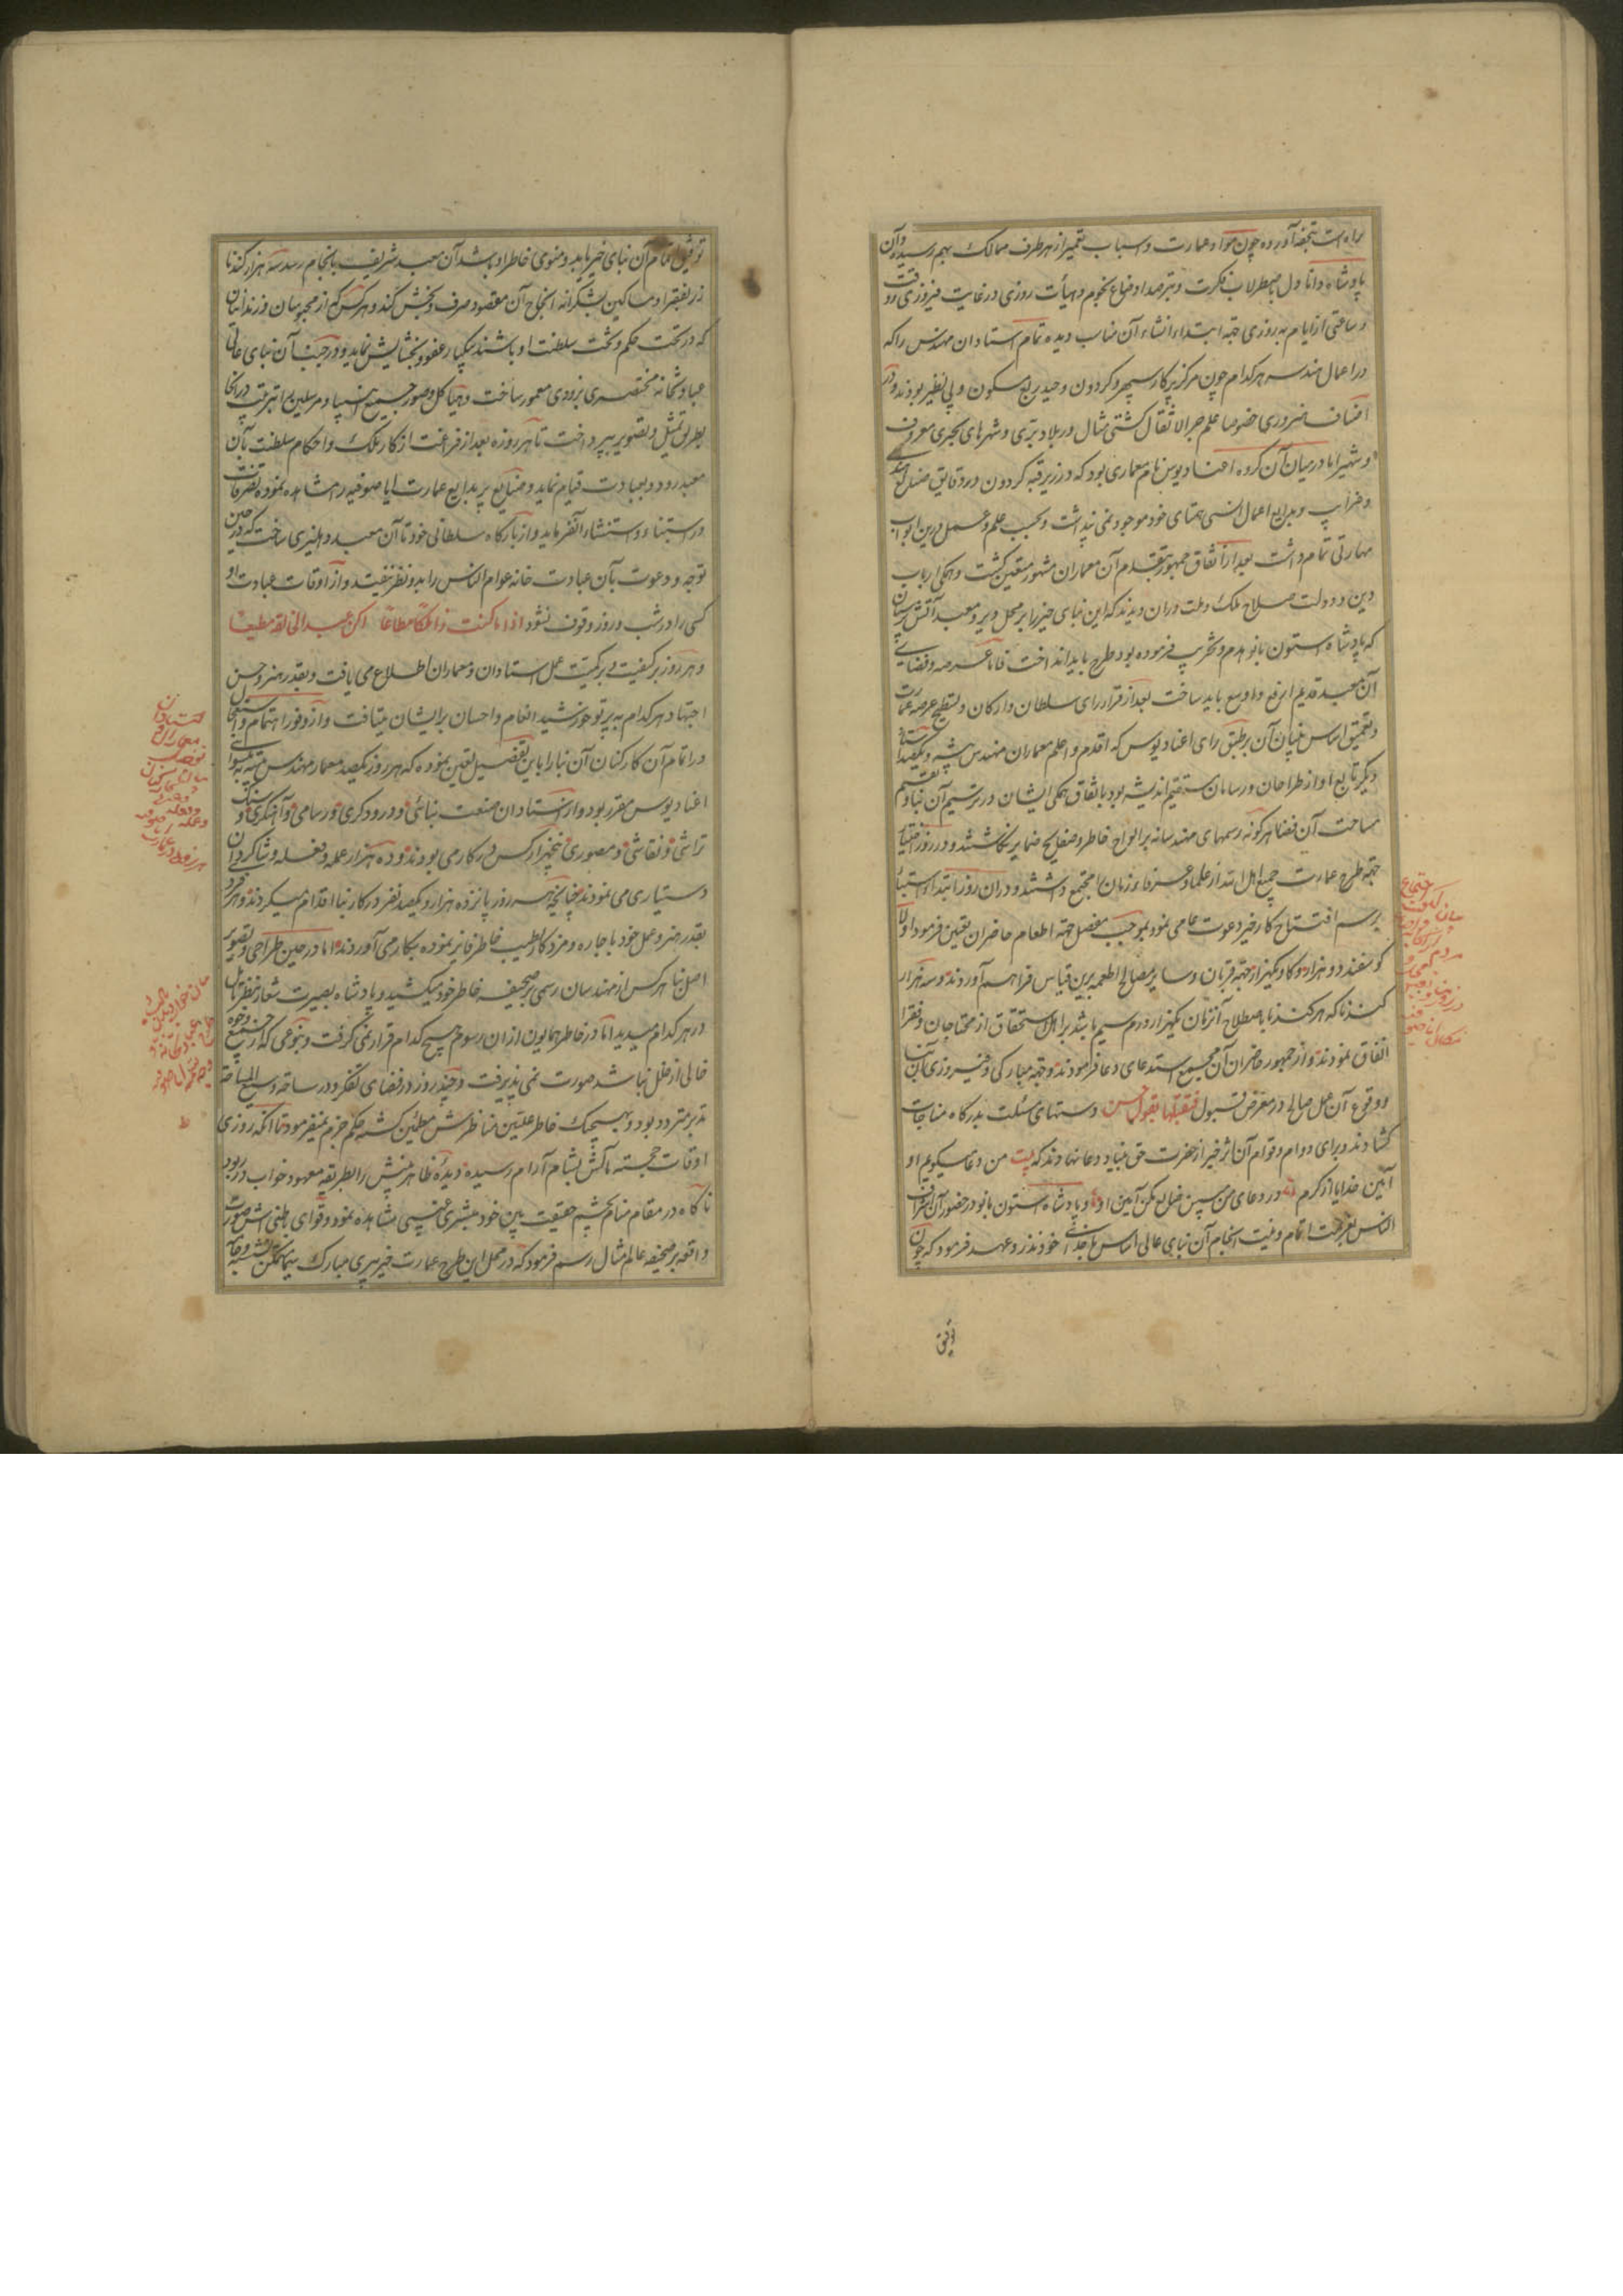 براه است بتحفه آورده چون مواد عمارت و اسباب تعمیر از هر طرف ممالک بهم رسید و آن
پادشاه دانا دل باصطرلاب فکرت و بترصد اوضاع نجوم و هیأت روزی در غایت فیروزی و وقت
و ساعتی از ایام به روزی جهة ابتداء انشاء آن مناسب دیده تمام استادان مهندس را که
در اعمال هندسه هر کدام چون مرکز پرکار سپهر و کردون وحید ربع مسکون و بی نظیر بودند و در
اصناف ضروری خصوصا علم جر الاثقال کشتی مثال در بلاد بری و شهرهای بحری معروف
و شهیر اما در میان آن کروه اغنادیوس نام معماری بود که در زیر قبه کردون در دقایق
و غرایب و بدایع اعمال انسی همتای خود موجود نمی پنداشت و بحسب علم و عمل درین ابواب
مهارتی تمام داشت بعد از اتفاق جمهور بتقدم آن معماران مشهور متعین کشت و همکی ارباب
دین و دولت صلاح ملک و ملت در آن دیدند که این بنای خیر را بر محل دیر و معبد آتش پرستان
که پادشاه استون یانو هدم و تخریب فرموده بود طرح باید انداخت فاما عرصه و فضای
آن معبد قدیم ارفع و اوسع باید ساخت بعد از قرار رای سلطان و ارکان و تسطیح عرصه عمارت
و تعمیق اساس بنیان آن بر طبق رای اغنادیوس که اقدم و اعلم معماران مهندس پیشه و یکصد استاد
دیکر تابع او از طراحان و رسامان مستقیم اندیشه بود باتفاق همکی ایشان در ترسیم آن بنا و تقسیم
مساحت آن فضا هر کونه رسمهای مهندسانه بر الواح خاطر و صفایح ضمایر نکاشتند و در روز اختیار
جهة طرح عمارت جمیع اهل الله از علما و عرفاء زمان را مجتمع داشتند و در آن روز ابتداء استیناء
برسم افتتاح کار خیر دعوت عامی نمود بموجب مفصل جهة اطعام حاضران تعیین فرمود اولا
کوسفند دو هزار و کاو یکهزار جهة قربان و سایر مصالح اطعمه برین قیاس فراهم آوردند و سه هزار
کندنا که هر کندنا باصطلاح آنزمان یکهزار درم سیم باشد بر اهل استحقاق از محتاجان و فقرا
انفاق نمودند و از جمهور حاضران آن مجمع استدعای دعا فرمودند و جهة مبارکی و فیروزی آن بنا
و وقوع آن عمل صالح در معرض قبول فتقبلها بقبول حسن دستهای مسئلت بدرکاه مناجات
کشادند و برای دوام و قوام آن اثر خیر از حضرت حق بنیاد دعا نهادند که بیت من دعا میکویم او
آمین خدایا از کرم در دعای من سپس ضایع مکن آمین او و پادشاه استون یانو در حضور آن اشراف
الناس بعزیمت اتمام و نیت انجام آن بنای عالی اساس با خدای خود نذر و عهد فرمود که چون
توفیق
توفیق اتمام آن بنای خیر یابد و منوی خاطر او باشد آن معبد شریف بانجام رسد سه هزار کندنا
زر بفقرا و مساکین بشکرانه انجاح آن مقصود صرف و بخش کند و هر کس که از محبوسان و زندانیان
که در تحت حکم و تخت سلطنت او باشند یکباره عفو و بخشایش نماید و در جنب آن بنای عالی
عبادتخانه مختصری بزودی معمور ساخت و هیاکل و صور جمیع انبیا و مرسلین را بترتیب در آنجا
بطریق تمثیل و تصویر بپرداخت تا هر روزه بعد از فراغت از کار ملک و احکام سلطنت بآن
معبد رود و بعبادت قیام نماید و صنایع پر بدایع عمارت ایا صوفیه را مشاهده نموده تصرفات
در استبناء و استنشاء آن فرماید و از بارکاه سلطانی خود تا آن معبد دهلیزی ساخت که در حین
توجه و دعوت بآن عبادت خانه عوام الناس را بدو نظر نیفتد و از اوقات عبادت او
کسی را در شب و روز وقوف نشود اذا ما کنت ذا ملکا مطاعا اکن عبدالخالقه مطیعا
و هر روز بر کیفیت و بر کمیت عمل استادان و معماران اطلاع می یافت و بقدر هنر و حسن
اجتهاد هر کدام به پرتو خورشید انعام و احسان بر ایشان میتافت و از وفور اهتمام و استعجال
در اتمام آن کارکنان آن بنا را باین تفصیل تعین نموده که هر روز یکصد معمار مهندس پیشه به پیشوائی
اغنادیوس مقرر بود و از استادان صنعت بنائی و درودکری و رسامی و آهنکری و سنک
تراشی و نقاشی و مصوری پنجهزار کس در کار می بودند و ده هزار عمله و فعله و شاکردان
دستیاری می نمودند چنانچه هر روز پانزده هزار و یکصد نفر در کار بنا اقدام میکردند و هر فرد
بقدر هنر و عمل خود با جاره و مزد کار طیب خاطر فایز نموده بکار می آوردند اما در حین طراحی و تصویر
اصل بنا هر کس از مهندسان رسمی بر صحیفه خاطر خود میکشید و پادشاه بصیرت شعار بنظر تامل
در هر کدام میدید اما در خاطر همایون از آن رسوم هیچ کدام قرار نمی کرفت و بنوعی که از جمیع وجوه
خالی از خلل نباشد صورت نمی پذیرفت و چند روز در فضای تفکر و در ساحه وسیع المساحة
تدبر متردد بود و بهیچیک خاطر علیین مناظرش مطمئن کشته حکم جزم نمیفرمود تا انکه روزی
اوقات خجسته مآلش بشام آرام رسیده دیده ظاهر بینش را بطریقه معهود خواب در ربود
ناکاه در مقام منام بچشم حقیقت بین خود مبشری غیبی مشاهده نمود و قوای باطنی اش صورت
واقعه بر صحیفه عالم مثال رسم فرمود که در محل این طرح عمارت خیر پیری مبارک سیما